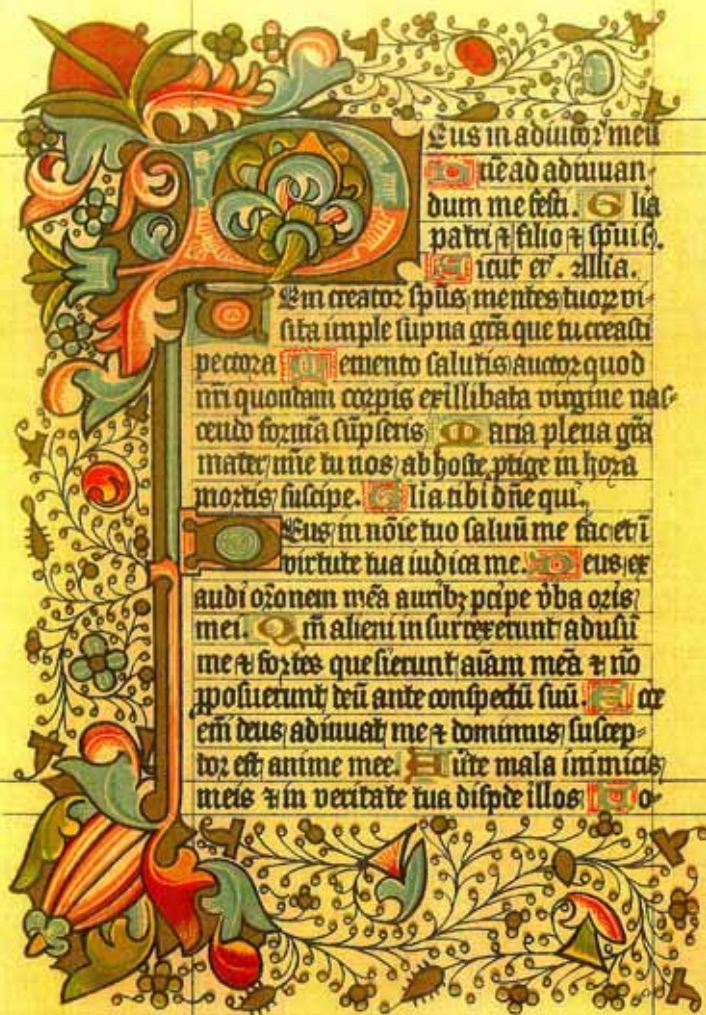 Deus in adiutor meū
Dn̄e ad adiuuan-
dum me festi. Glia
patri ⁊ filio ⁊ spui s.
Sicut er̄. Allia.
Uem creator spūs mentes tuoꝝ vi-
sita imple supna gr̄a que tu creasti
pectora Memento salutis auctor quod
nr̄i quondam corpis ex illibata virgine nas-
cendo formā sūpseris Maria plena gr̄a
mater mīe tu nos ab hoste ptige in hora
mortis suscipe. Glia tibi dn̄e qui.
Deus in nōie tuo saluū me fac et ī
virtute tua iudica me. Deus ex
audi or̄onem meā auribꝫ pcipe v̄ba oris
mei. Qm̄ alieni insurrexerunt adusū
me ⁊ fortes quesierunt aīam meā ⁊ nō
ꝓposuerunt deū ante conspectū suū. Ecce
em̄ deus adiuuat me ⁊ dominus suscep-
tor est anime mee. Aūte mala inimicis
meis ⁊ in veritate tua dispde illos Uo-